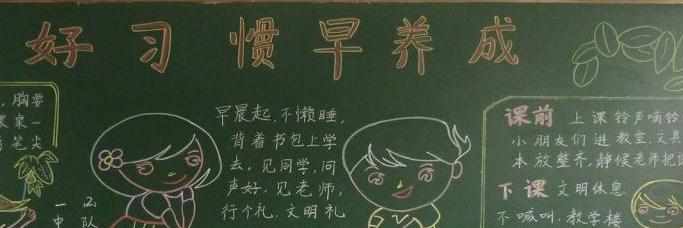 好习惯早养成
，胸要
桌一
笔尖
一
中
队
早晨起，不懒睡，
背着书包上学
去，见同学，问
声好，见老师，
行个礼，文明礼
课前 上课铃声嘀铃
小朋友们进教室，文具
本放整齐，静候老师把
下课 文明休息
不喊叫，教学楼